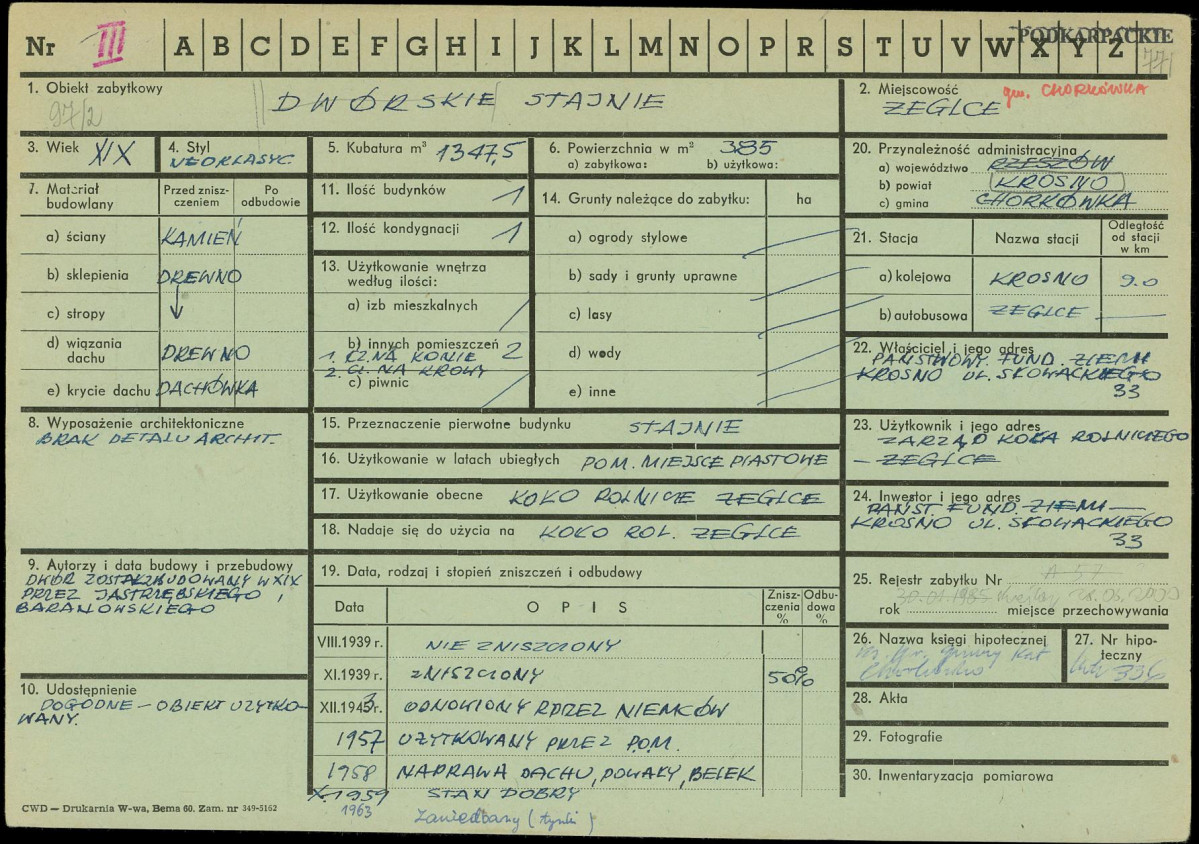 Nr III A B C D E F G H I J K L M N O P R S T U V W X Y Z
PODKARPACKIE
77
1. Obiekt zabytkowy
DWÓRSKIE STAJNIE
97/2
2. Miejscowość
gm. CHORKÓWKA
ŻEGLCE
3. Wiek XIX
4. Styl
NEOKLASYC.
5. Kubatura m³ 1347,5
6. Powierzchnia w m² 385
a) zabytkowa: b) użytkowa:
20. Przynależność administracyjna
a) województwo RZESZÓW
b) powiat KROSNO
c) gmina CHORKÓWKA
7. Materiał budowlany
Przed zniszczeniem
Po odbudowie
a) ściany KAMIEŃ
b) sklepienia DREWNO
c) stropy
d) wiązania dachu DREWNO
e) krycie dachu DACHÓWKA
11. Ilość budynków 1
12. Ilość kondygnacji 1
13. Użytkowanie wnętrza według ilości:
a) izb mieszkalnych
b) innych pomieszczeń 2
1. CZ. NA KONIE
2. CZ. NA KROWY
c) piwnic
14. Grunty należące do zabytku: ha
a) ogrody stylowe
b) sady i grunty uprawne
c) lasy
d) wody
e) inne
21. Stacja
Nazwa stacji
Odległość od stacji w km
a) kolejowa KROSNO 9.0
b) autobusowa ŻEGLCE —
22. Właściciel i jego adres
PAŃSTWOWY FUND. ZIEMI
KROSNO UL. SŁOWACKIEGO
33
8. Wyposażenie architektoniczne
BRAK DETALU ARCHIT.
15. Przeznaczenie pierwotne budynku STAJNIE
16. Użytkowanie w latach ubiegłych POM. MIEJSCE PIASTOWE
17. Użytkowanie obecne KOŁO ROLNICZE ŻEGLCE
18. Nadaje się do użycia na KOŁO ROL. ŻEGLCE
23. Użytkownik i jego adres
ZARZĄD KOŁA ROLNICZEGO
— ŻEGLCE
24. Inwestor i jego adres
PAŃST. FUND. ZIEMI —
KROSNO UL. SŁOWACKIEGO
33
9. Autorzy i data budowy i przebudowy
DWÓR ZOSTAŁ ZBUDOWANY W XIX
PRZEZ JASTRZĘBSKIEGO I
BARANOWSKIEGO
10. Udostępnienie
DOGODNE — OBIEKT UŻYTKO-
WANY.
19. Data, rodzaj i stopień zniszczeń i odbudowy
Data OPIS Zniszczenia % Odbudowa %
VIII.1939 r. NIE ZNISZCZONY
XI.1939 r. ZNISZCZONY 50%
XII.1943 r. ODNOWIONY PRZEZ NIEMCÓW
1957 UŻYTKOWANY PRZEZ P.O.M.
1958 NAPRAWA DACHU, POWAŁY, BELEK
X.1959 STAN DOBRY
1963 Zaniedbany (tynki)
25. Rejestr zabytku Nr A 57
30.01.1985 28.06.2000
rok miejsce przechowywania
26. Nazwa księgi hipotecznej
27. Nr hipoteczny
28. Akta
29. Fotografie
30. Inwentaryzacja pomiarowa
CWD — Drukarnia W-wa, Bema 60. Zam. nr 349-5162